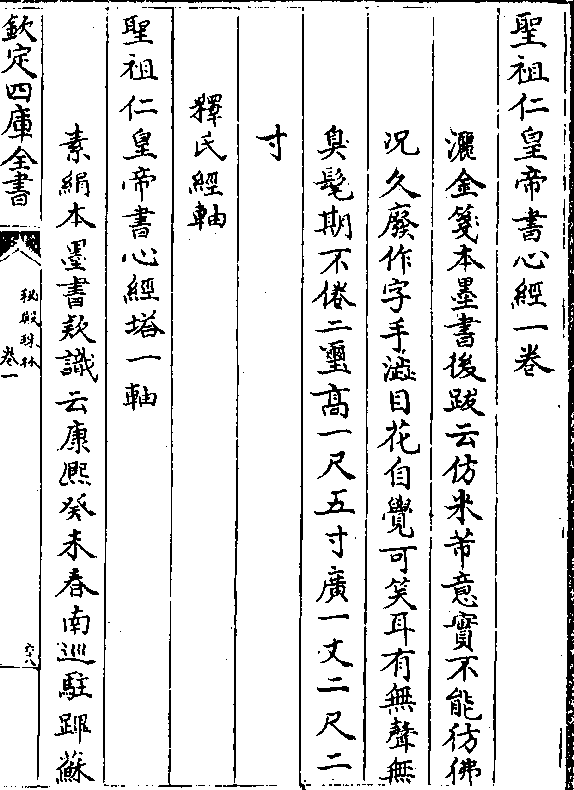 聖祖仁皇帝書心經一卷
灑金箋本墨書後跋云仿米芾意實不能彷彿
况久廢作字手澁目花自覺可笑耳有無聲無
臭髦期不倦二璽高一尺五寸廣一丈二尺二
寸
釋氏經軸
聖祖仁皇帝書心經塔一軸
素絹本墨書欵識云康熙癸未春南巡駐蹕蘇
欽定四庫全書
秘殿珠林
卷一
六八